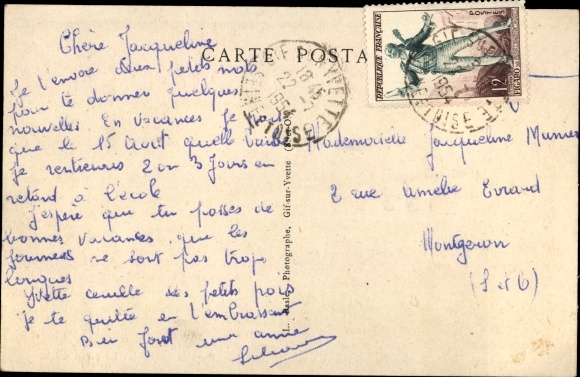 Chère Jacqueline
Je t'envoie deux petits mots
pour te donner quelques
nouvelles En vacances je
que le 15 Août
Je rentierais 2 ou 3 Jours en
retard à l'école
J'espère que tu passes de
bonnes vacances que les
journées ne sont pas trop
longues
Yvette cueille des petits pois
je te quitte en t'embrassant
Bien fort une amie
CARTE POSTA
GIF-SUR-YVETTE
SEINE-ET-OISE
1954
REPUBLIQUE FRANÇAISE
POSTES
12F
FIGARO
Mademoiselle Jacqueline
2 rue Amélie Evrard
Montgeron
(S et O)
Photographe, Gif-sur-Yvette (S.-et-O.)